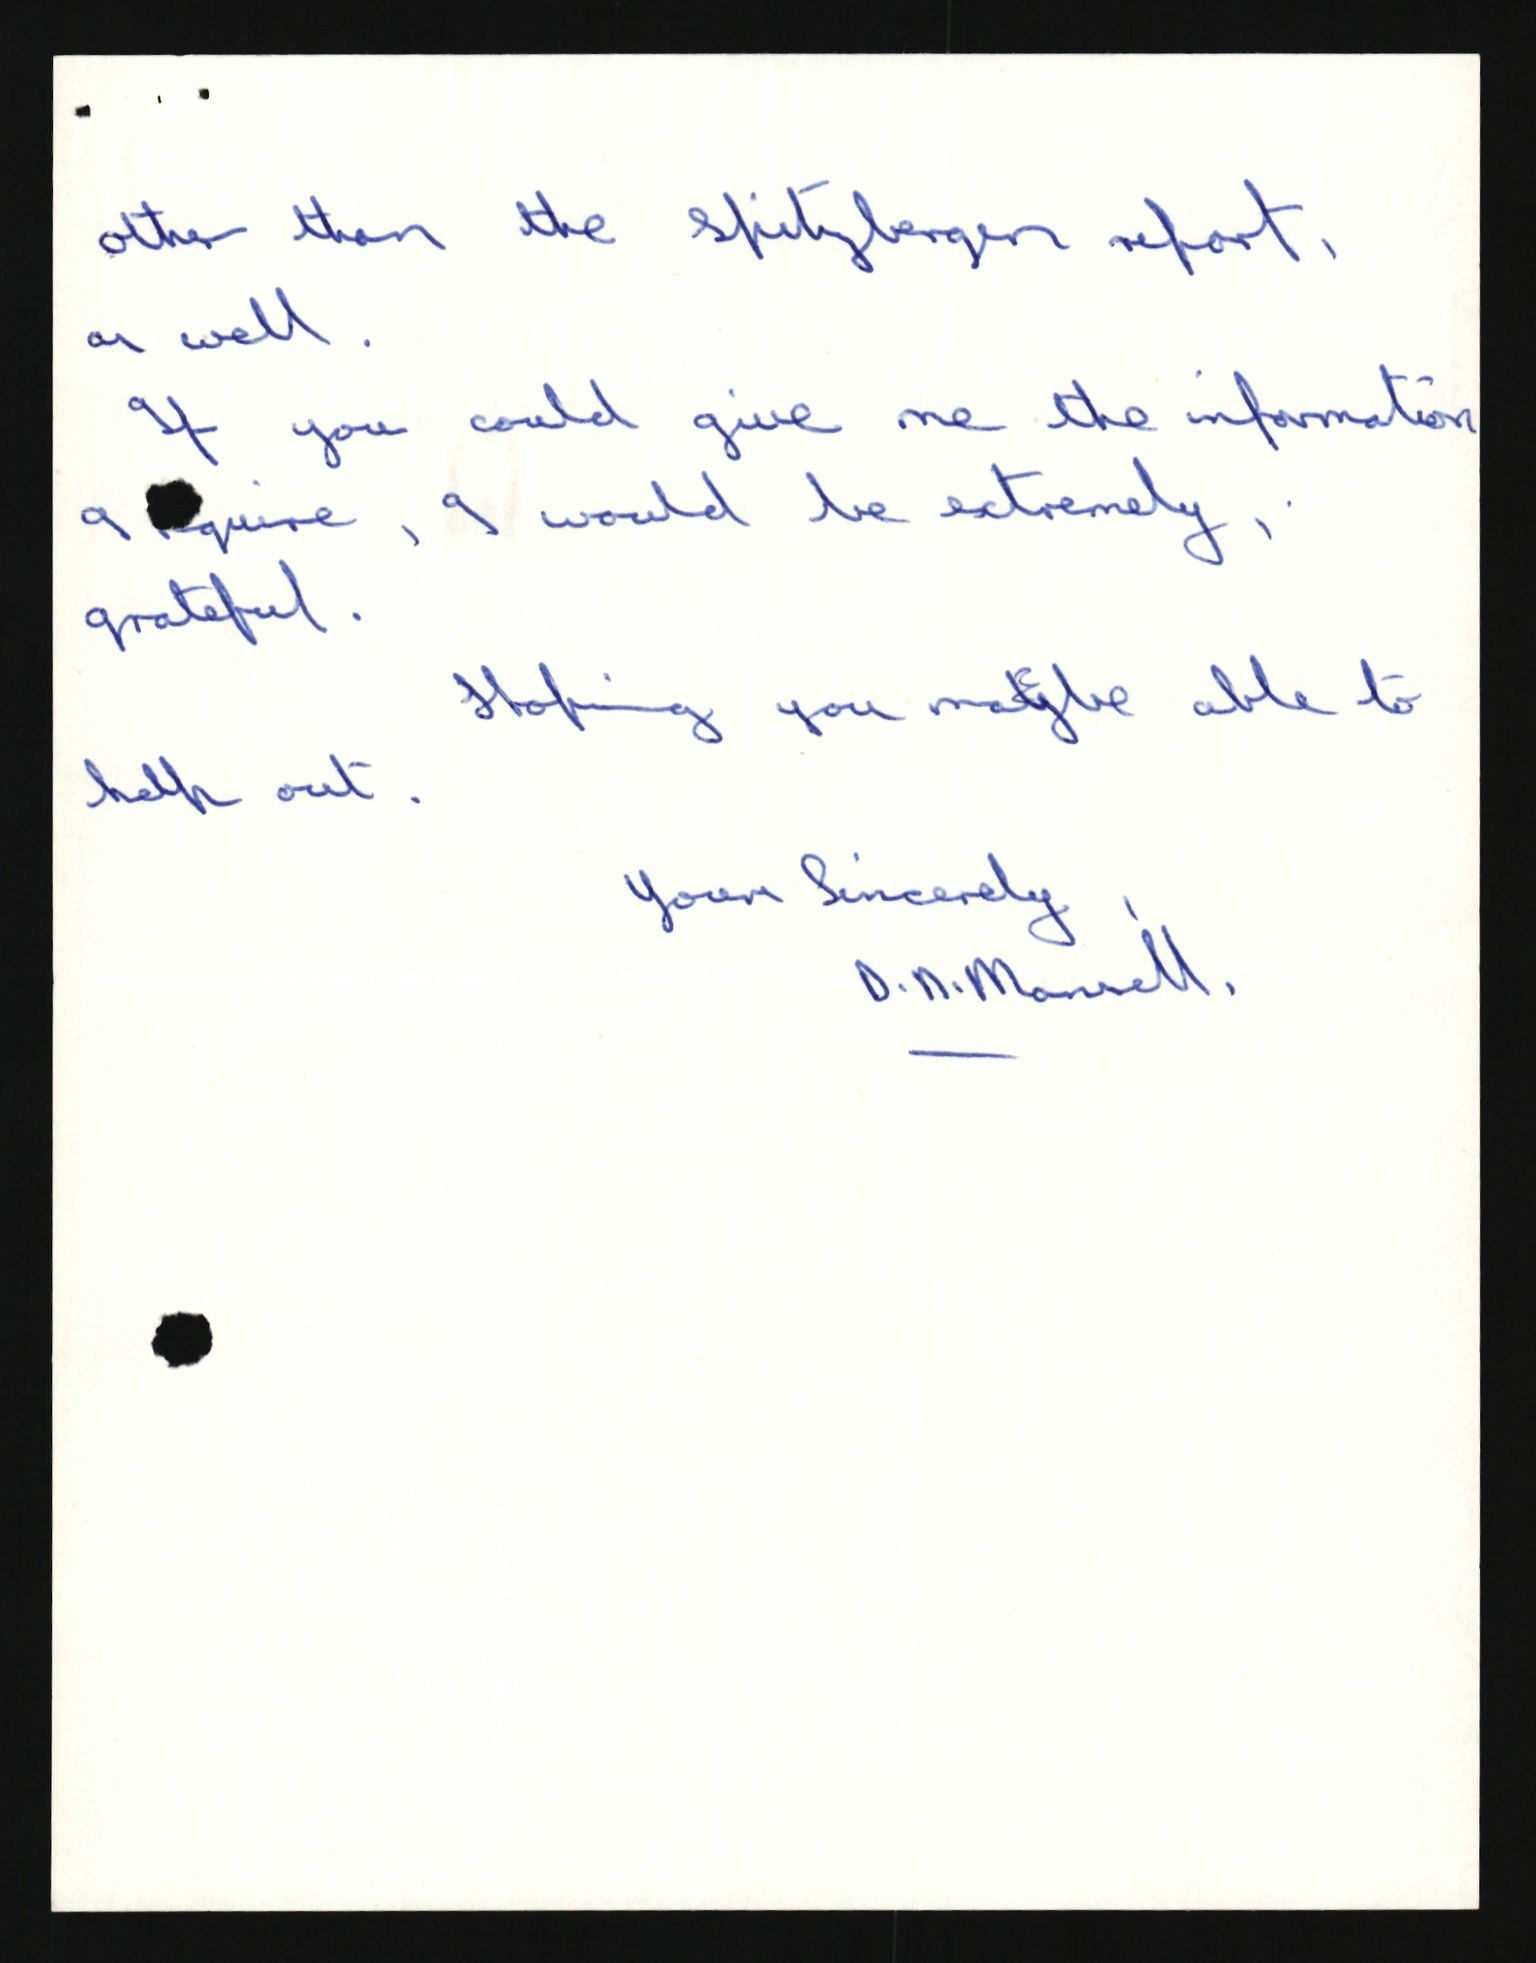 other than the Spitzbergen report,
as well.
If you could give me the information
I require, I would be extremely,
grateful.
Hoping you maybe able to
help out.
Yours Sincerely,
D. N. Mansell.